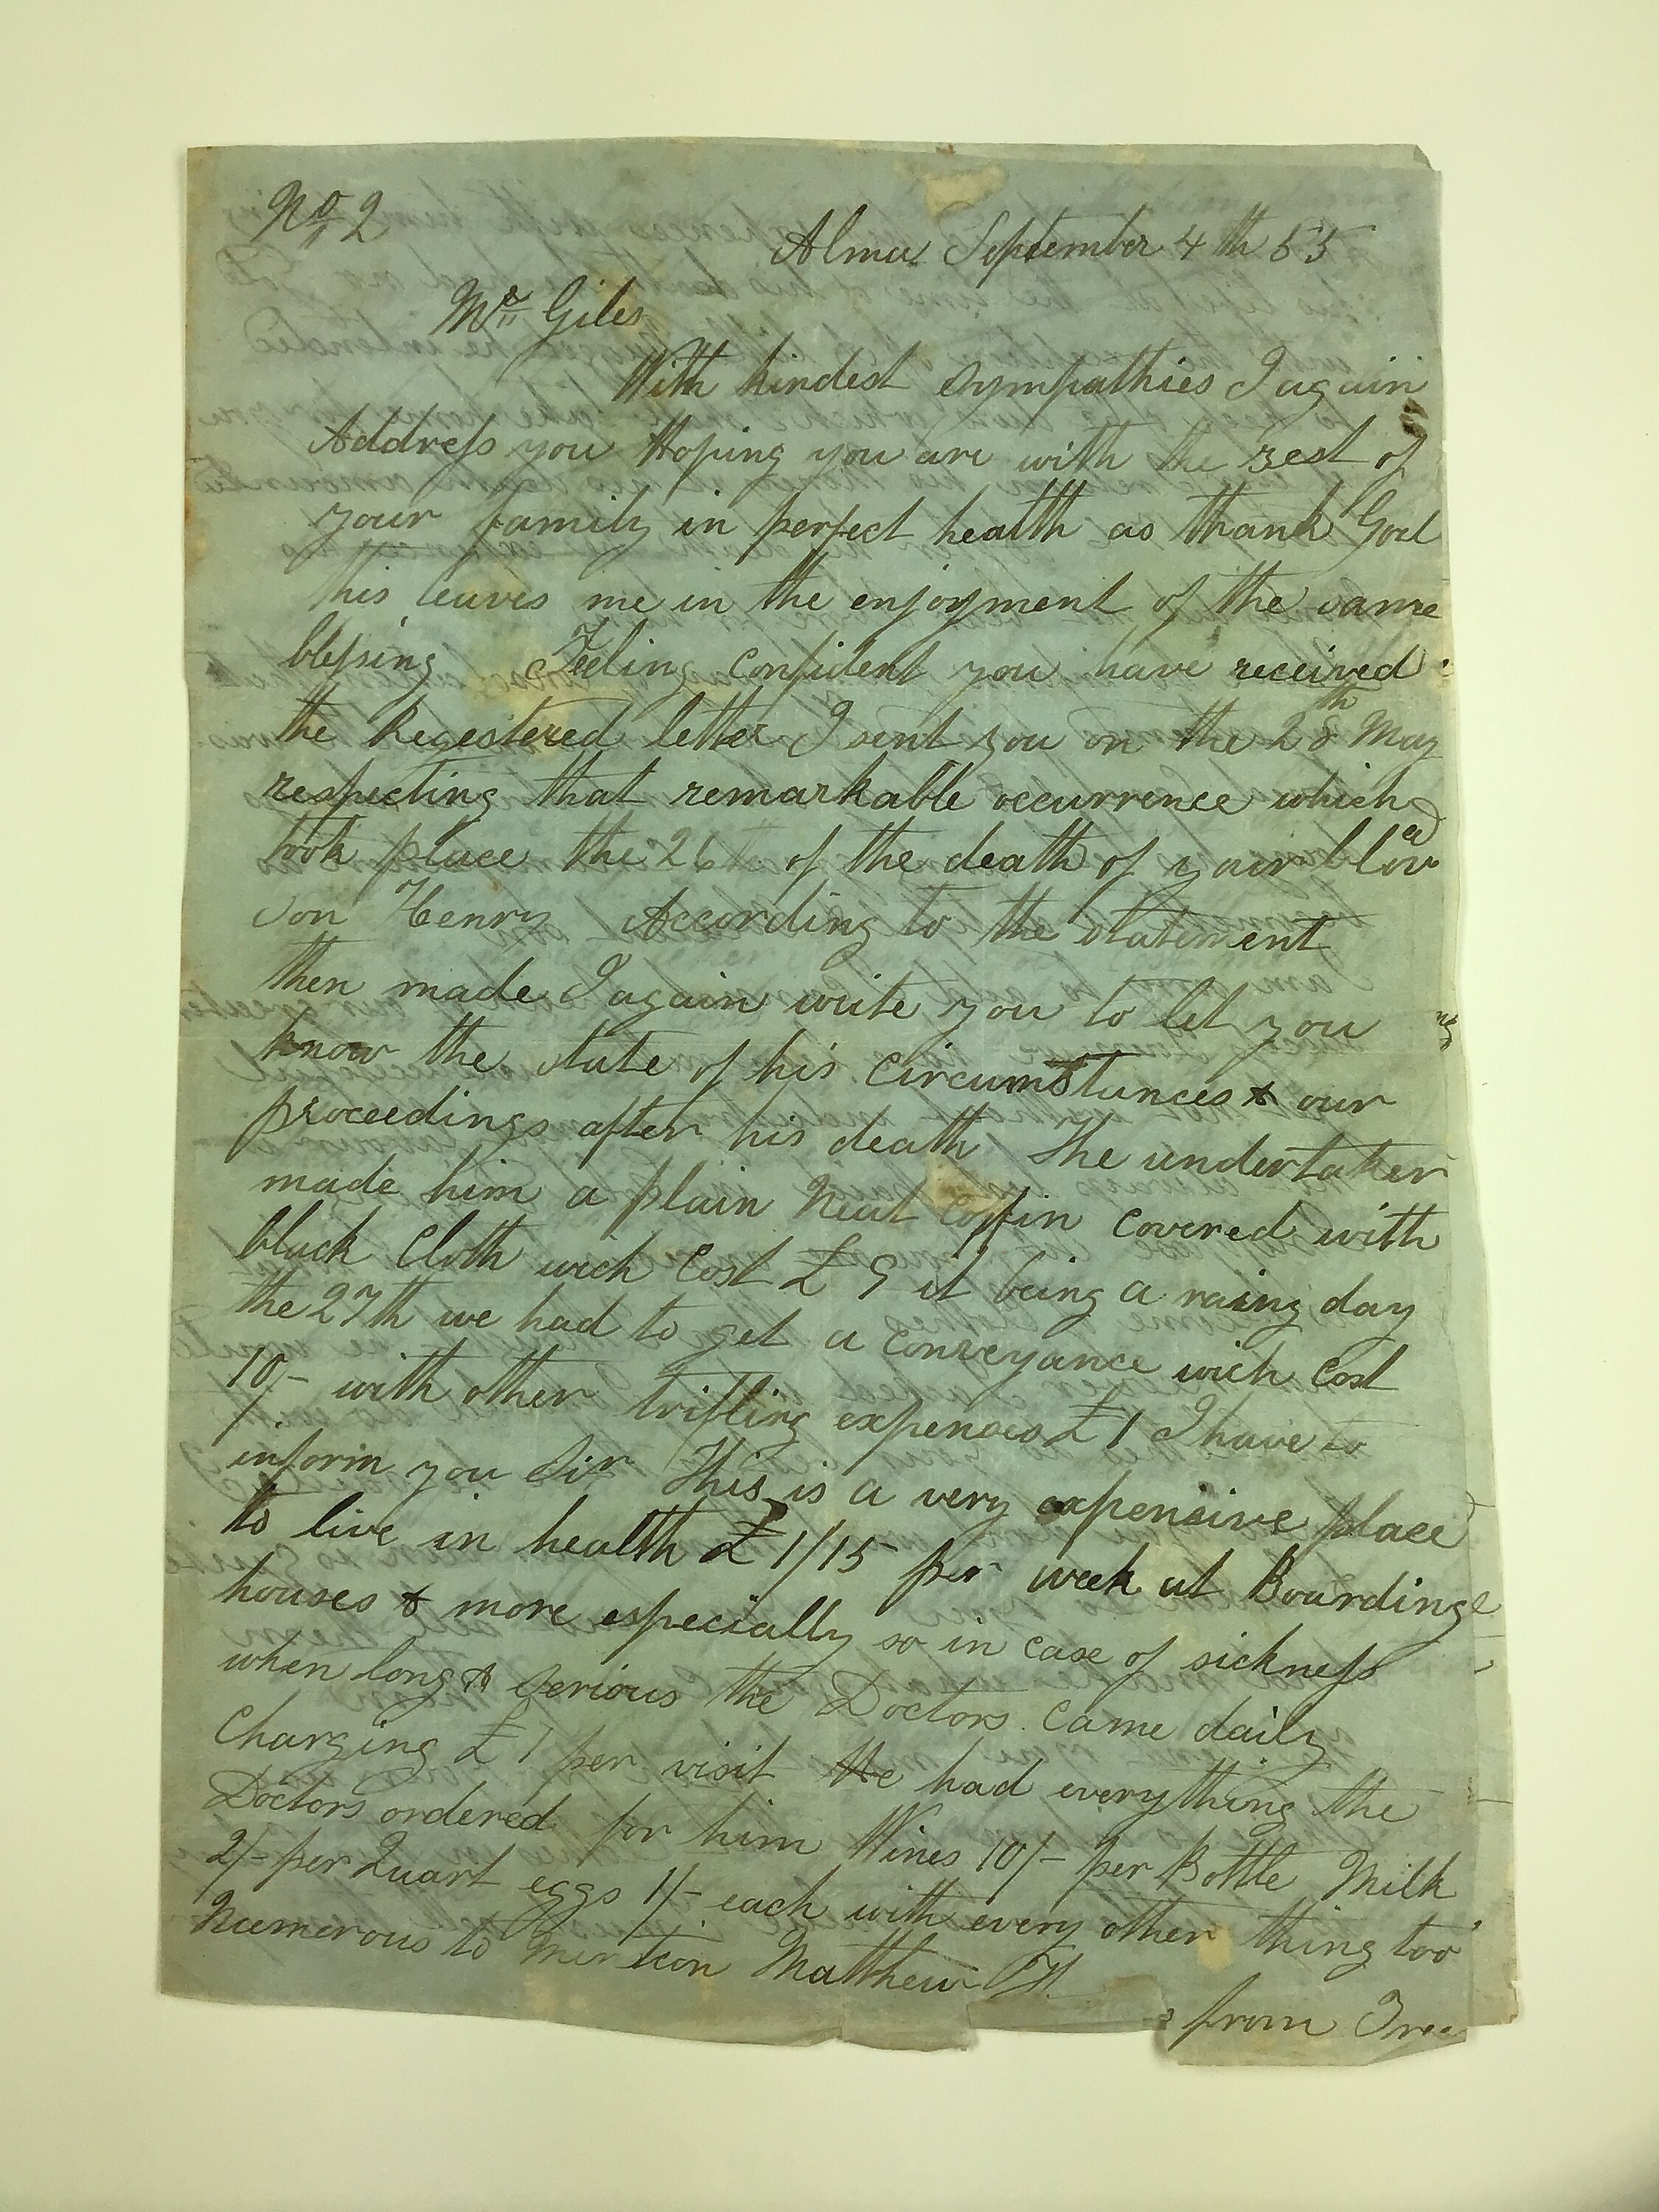 No 2
Alma September 4th 55
Mr Giles
With kindest sympathies I again
Address you Hoping you are with the rest of
your family in perfect health as thank God
this leaves me in the enjoyment of the same
blessing Feeling confident you have received
the Regestered letter I sent you on the 28th May
respecting that remarkable occurrence which
took place the 26th of the death of your
son Henry According to the statement
then made I again write you to let you
know the state of his circumstances & our
proceedings after his death The undertaker
made him a plain Neat coffin covered with
black Cloth wich Cost £ 9 it being a rainy day
the 27th we had to get a conveyance wich Cost
10/- with other trifling expences £1 I have to
inform you Sir This is a very expensive place
to live in health £1/15 per week at Boarding
houses & more especially so in case of sickness
when long & serious the Doctors came daily
Charging £1 per visit He had everything the
Doctors ordered for him Wines 10/- per Bottle Milk
2/- per Quart eggs 1/- each with every other thing too
Numerous to Mention Matthew H
from